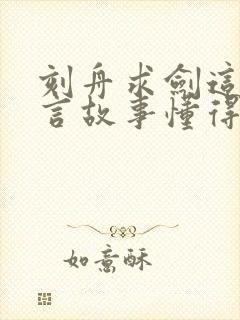 刻舟求劍這
言故事懂得
如意酥